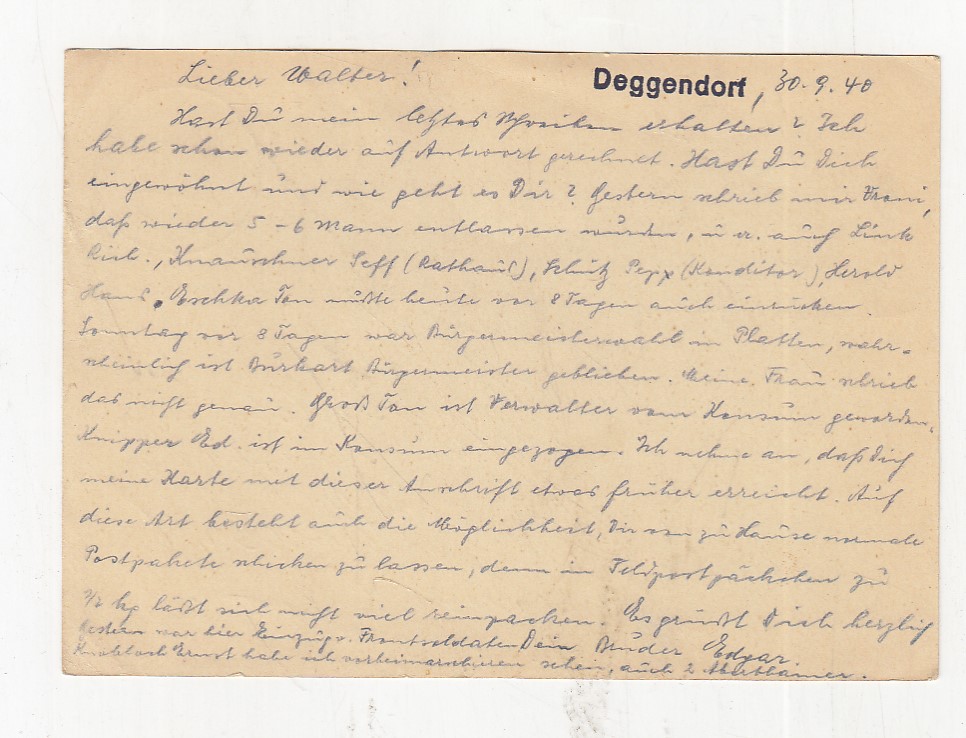 Lieber Walter!
Deggendorf, 30.9.40
Hast Du mein letztes Schreiben erhalten? Ich
habe schon wieder auf Antwort gerechnet. Hast Du Dich
eingewöhnt und wie geht es Dir? Gestern schrieb mir Franzi,
daß wieder 5-6 Mann entlassen wurden, u. a. auch Link
Rich., Knauschner Seff (Rathaus), Schütz Pepp (Konditor), Herold
Hans. Eschka Ton mußte heute vor 8 Tagen auch einrücken.
Sonntag vor 8 Tagen war Bürgermeisterwahl in Platten, wahr-
scheinlich ist Burkart Bürgermeister geblieben. Meine Frau schrieb
das nicht genau. Groß Ton ist Verwalter vom Konsum geworden.
Knipper Ed. ist im Konsum eingezogen. Ich nehme an, daß Dich
meine Karte mit dieser Anschrift etwas früher erreicht. Auf
diese Art besteht auch die Möglichkeit, Dir von zu Hause normale
Postpakete schicken zu lassen, denn in Feldpostpäckchen zu
1/2 kg läßt sich nicht viel reinpacken. Es grüßt Dich herzlich
Dein Bruder Edgar.
Gestern war hier Einzug v. Frontsoldaten
Knobloch Ernst habe ich vorbeimarschieren sehen, auch 2 Aberthamer.